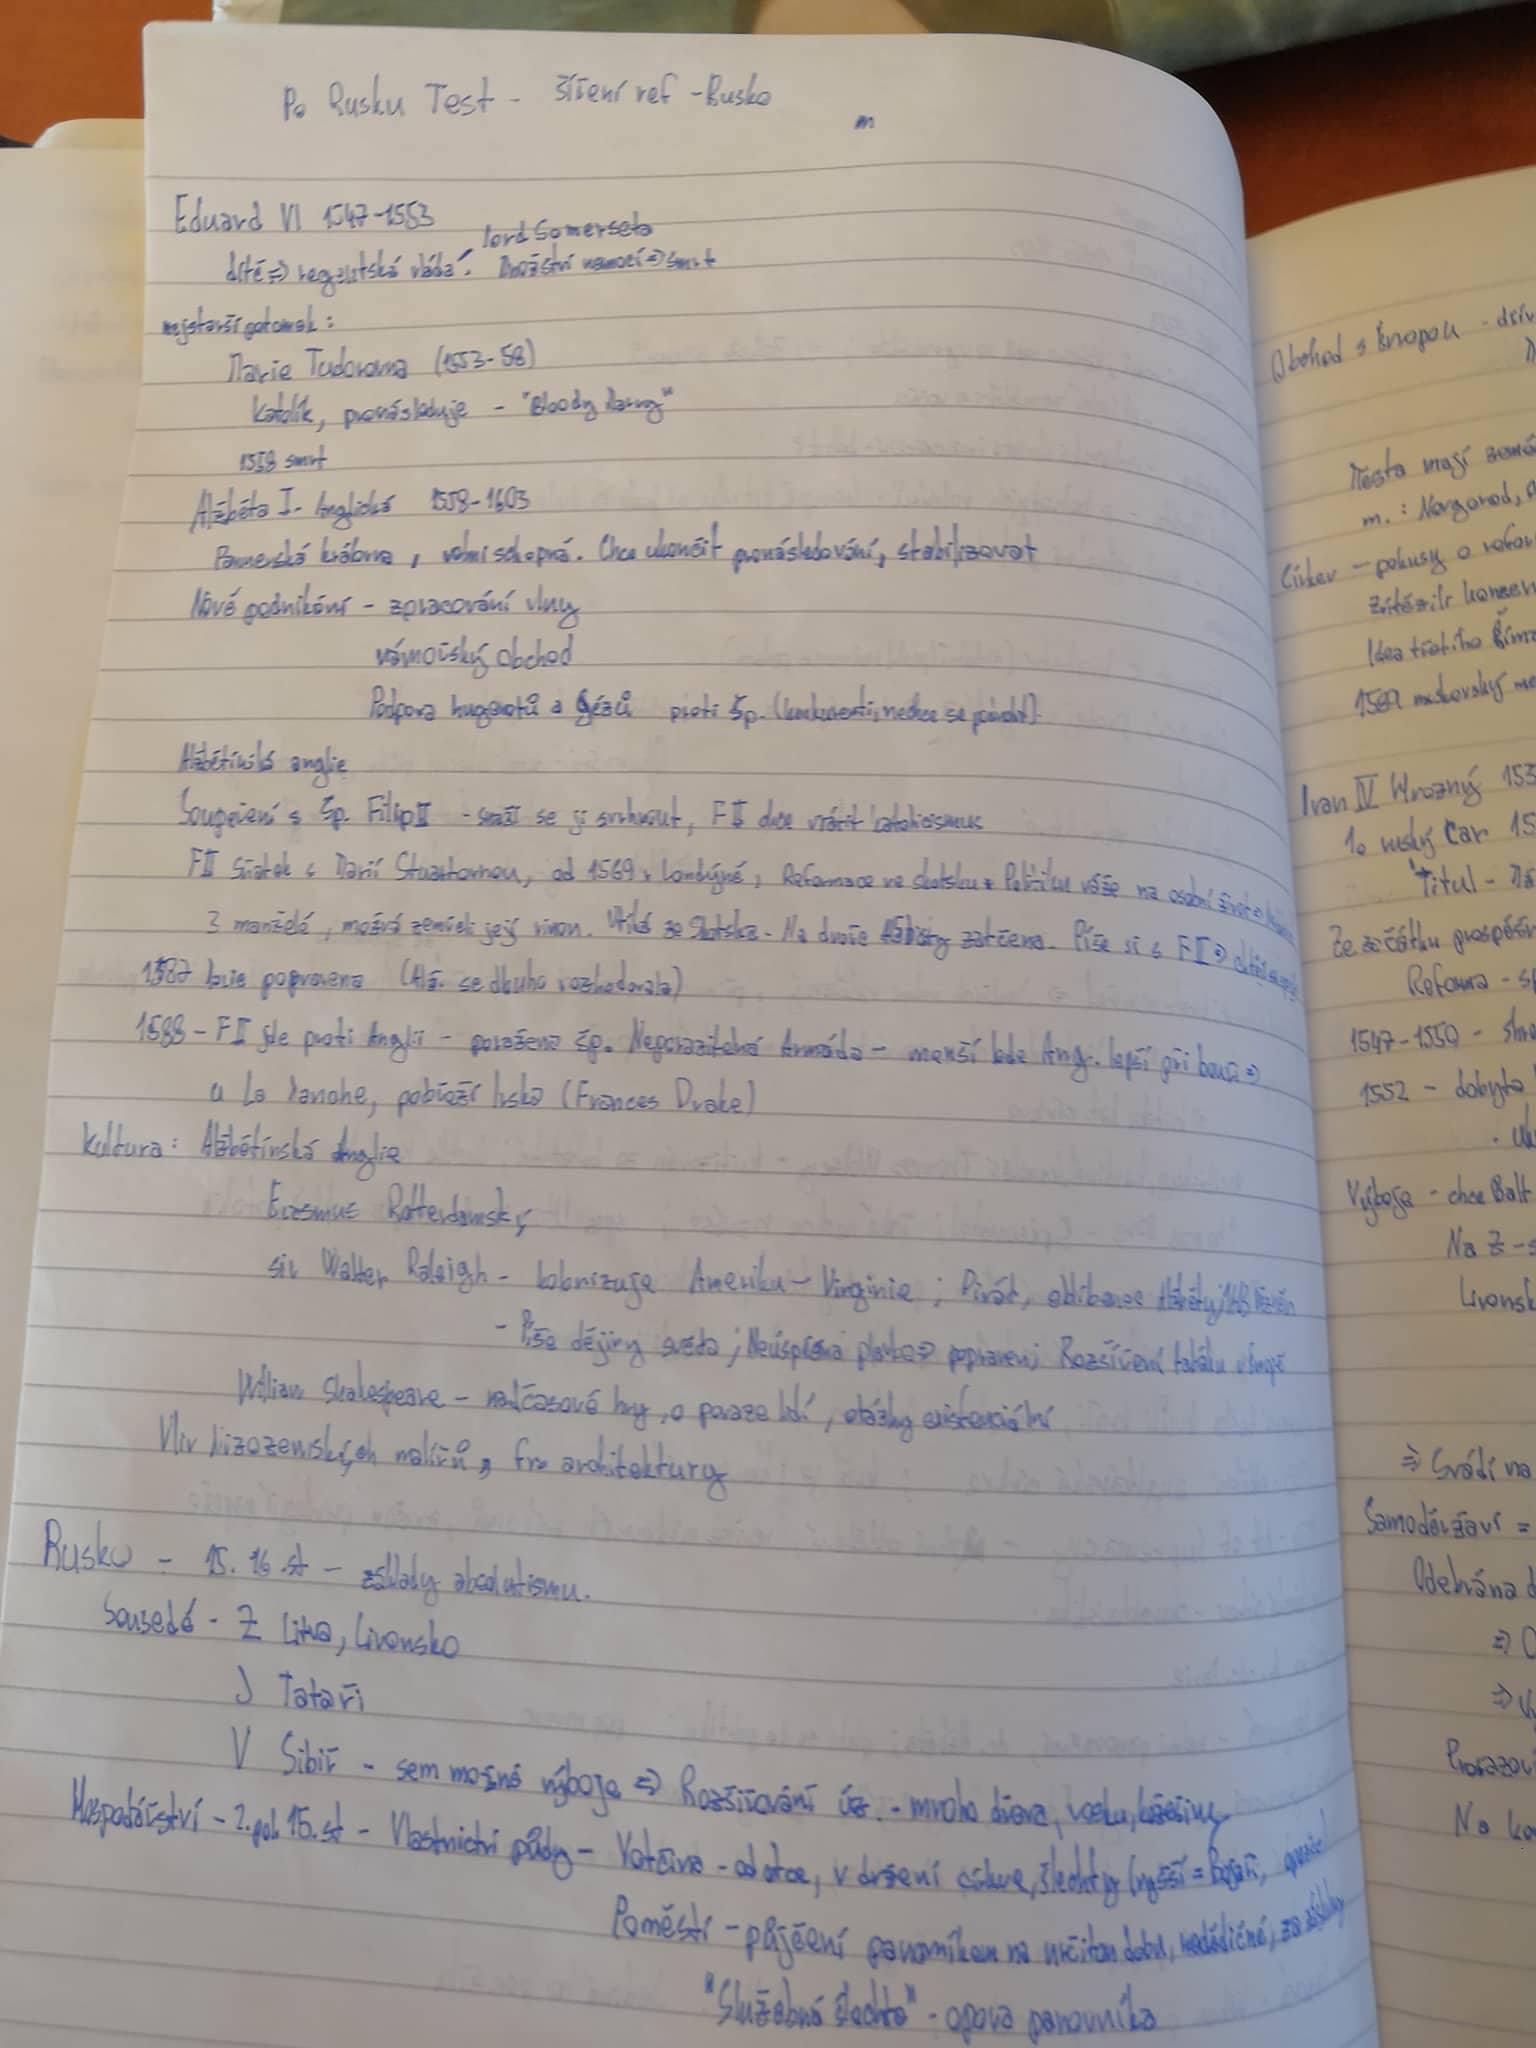 Po Rusku Test - šíření ref - Rusko
m
Eduard VI 1547-1553
lord Somerseta
dítě => regentská vláda. Množství nemocí => smrt
nejstarší potomek:
Marie Tudorovna (1553-58)
Katolík, pronásleduje - "Bloody Mary"
1558 smrt
Alžběta I. Anglická 1558-1603
Panenská královna, velmi schopná. Chce ukončit pronásledování, stabilizovat
Nové podnikání - zpracování vlny
námořský obchod
Podpora hugenotů a Gézů proti Šp. (konkurenti, nechce se podvolit)
Alžbětínská anglie
Soupeření s Šp. Filip II - snaží se ji svrhnout, FII chce vrátit katolicismus
FII sňatek s Marií Stuartovnou, od 1569 v Londýně, Reformace ve skotsku Politiku váže na osobní život =>
3 manželé, možná zemřeli její vinou. Utíká ze Skotska. Na dvoře Alžběty zatčena. Píše si s FII =>
1587 Marie popravena (Alž. se dlouho rozhodovala)
1588 - FII jde proti Anglii - poražena Šp. Neporazitelná Armáda - menší lodě Ang. lepší při bouři =>
u La Manche, pobřeží Irska (Frances Drake)
Kultura: Alžbětínská Anglie
Erasmus Rotterdamský
sir Walter Raleigh - kolonizuje Ameriku - Virginie; Pirát, oblíbenec Alžběty, vězněn
- Píše dějiny světa; Neúspěšná plavba => popraven; Rozšíření tabáku v Evropě
William Shakespeare - nadčasové hry, o povaze lidí, otázky existenciální
Vliv Nizozemských malířů, fra architektury
Rusko - 15. 16. st - základy absolutismu.
Sousedé - Z Litva, Livonsko
J Tataři
V Sibiř - sem možné výboje => Rozšiřování úz. - mnoho dřeva, vosku, kožešiny
Hospodářství - 2. pol. 15. st - Vlastnictví půdy - Votčina - od otce, v držení církve, šlechty (vyšší = Bojaři,
Poměstí - půjčení panovníkem na určitou dobu, nedědičné, za zásluhy
"Služebná šlechta" - opora panovníka
Obchod s Evropou - dřív
Města mají
m.: Novgorod,
Církev - pokusy o
Zvítězili
Idea třetího Říma
1589 moskovský
Ivan IV Hrozný 153
1. ruský Car 15
Titul -
Ze začátku prospěš
Reforma - s
1547-1550 -
1552 - dobyta
Výboje - chce Balt
Na Z -
Livonsk
=> Svádí na
Samoděržaví =
Odebrána
=>
=>
Prorazov
Na